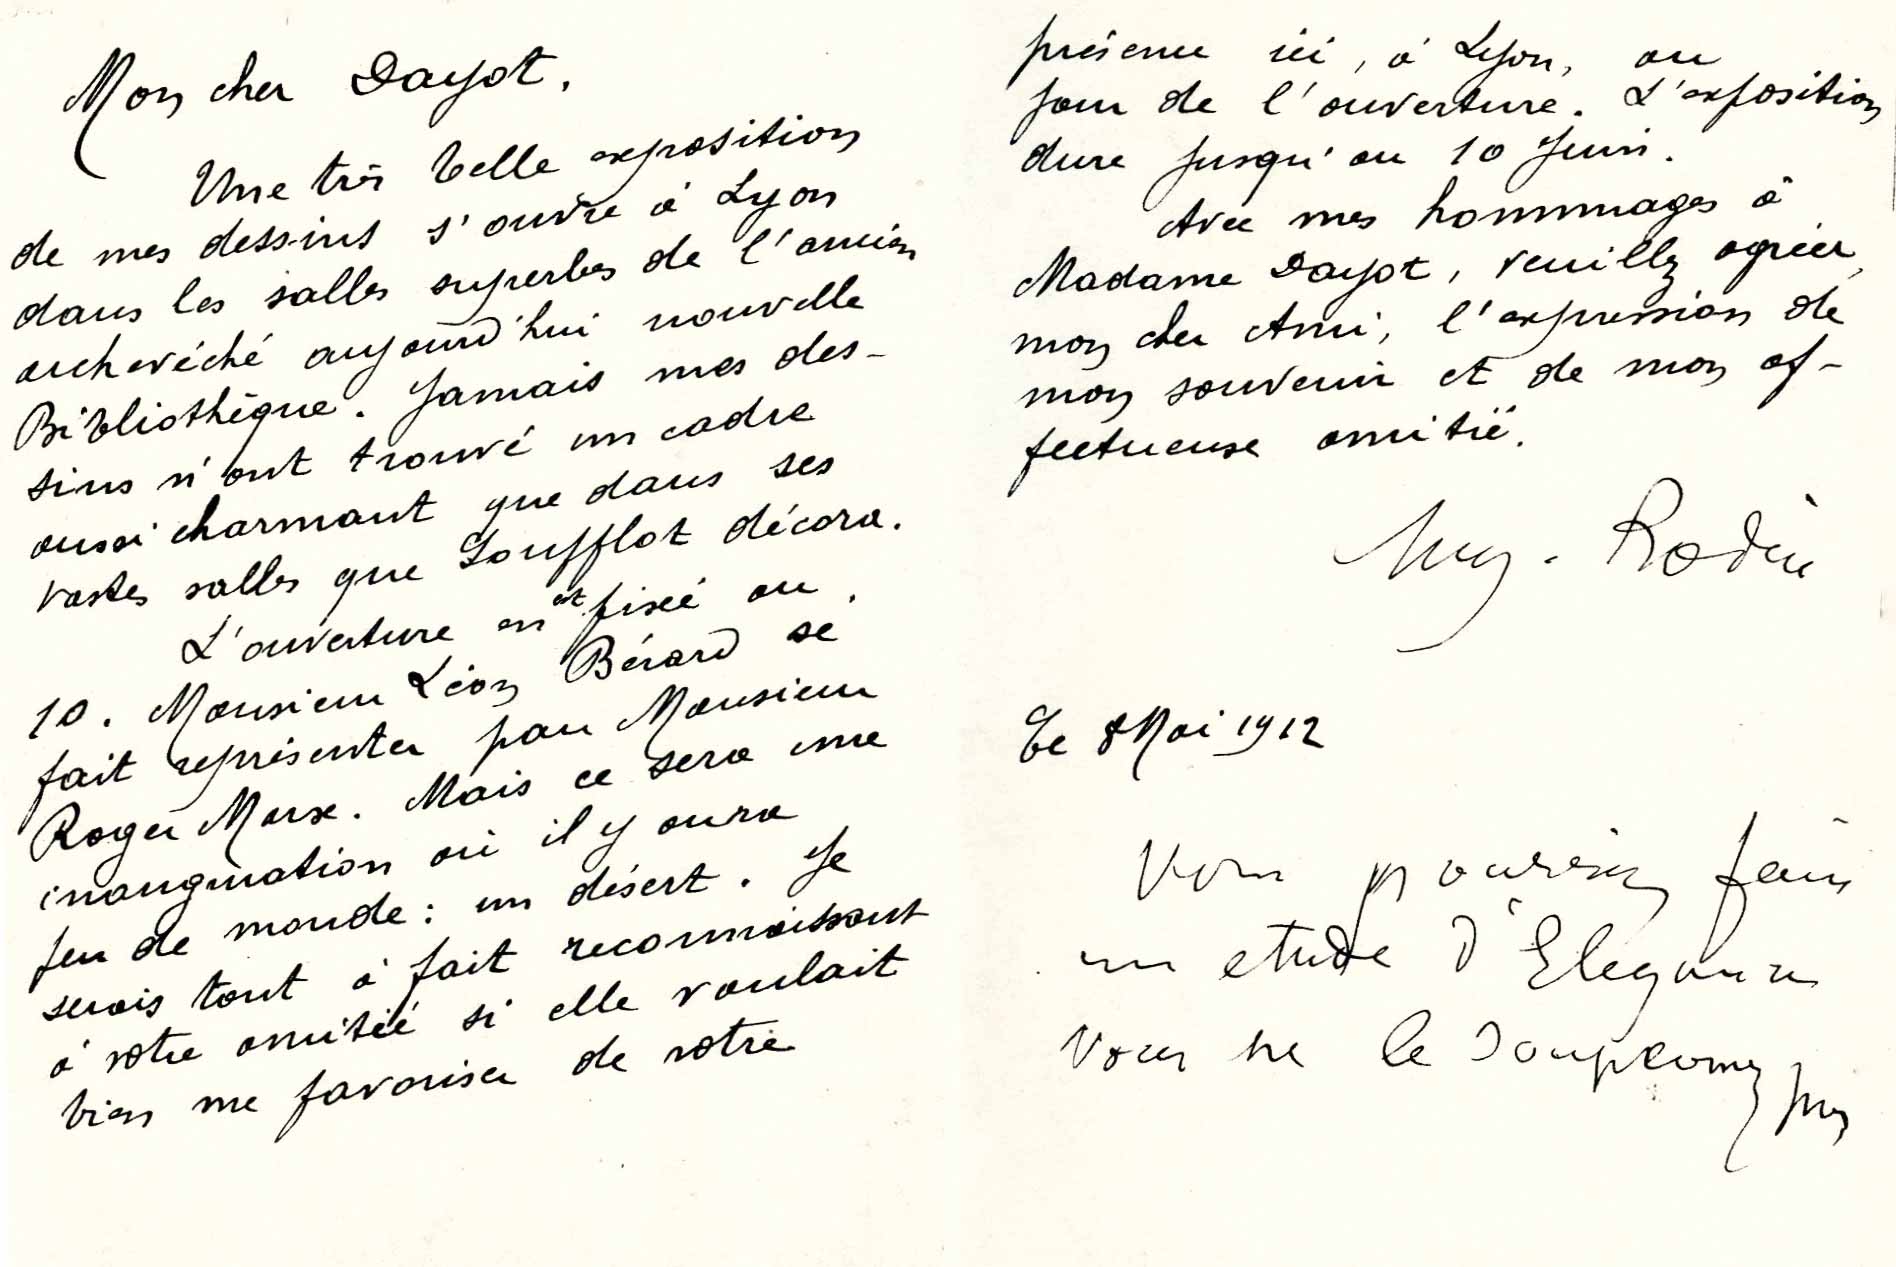 Mon cher Dayot,
Une très belle exposition
de mes dessins s'ouvre à Lyon
dans les salles superbes de l'ancien
archevêché aujourd'hui nouvelle
Bibliothèque. Jamais mes des-
sins n'ont trouvé un cadre
aussi charmant que dans ses
vastes salles que Soufflot décora.
L'ouverture en est fixée au
10. Monsieur Léon Bérard se
fait représenter par Monsieur
Roger Marx. Mais ce sera une
inauguration où il y aura
peu de monde : un désert. Je
serais tout à fait reconnaissant
à votre amitié si elle voulait
bien me favoriser de votre
présence ici, à Lyon, au
jour de l'ouverture. L'exposition
dure jusqu'au 10 Juin.
Avec mes hommages à
Madame Dayot, veuillez agréer,
mon cher Ami, l'expression de
mon souvenir et de mon af-
fectueuse amitié.
Aug. Rodin
Le 8 Mai 1912
Vous pourriez faire
un etude d'Elegance
vous ne le soupconnez pas